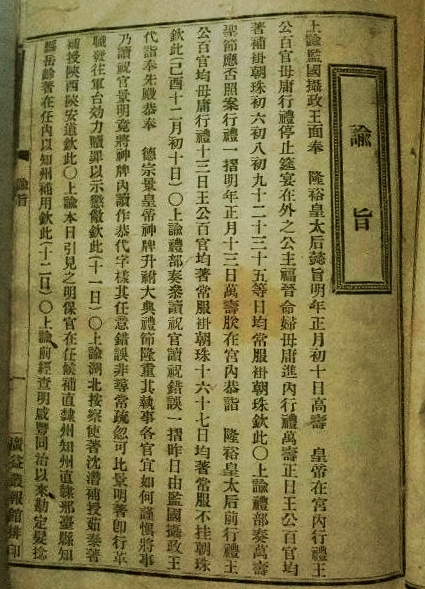 諭旨
上諭監國攝政王面奉　隆裕皇太后懿旨明年正月初十日高壽　皇帝在宮內行禮王
公百官毋庸行禮停止筵宴在外之公主福晉命婦毋庸進內行禮萬壽正日王公百官均
著補褂朝珠初六初八初九十二十三十五等日均常服褂朝珠欽此〇上諭禮部奏萬壽
聖節應否照案行禮一摺明年正月十三日萬壽朕在宮內恭詣　隆裕皇太后前行禮王
公百官均毋庸行禮十三日王公百官均著常服褂朝珠十六十七日均著常服不挂朝珠
欽此(己酉十二月初十日)〇上諭禮部奏叅讀祝官讀祝錯誤一摺昨日由監國攝政王
代詣奉先殿恭奉　德宗景皇帝神牌升祔大典禮節隆重其執事各官宜如何謹愼將事
乃讀祝官景明竟將神牌內讀作恭代字樣其任意錯誤非尋常疏忽可比景明著卽行革
職發往軍台効力贖罪以示懲儆欽此(十一日)〇上諭湖北按察使著沈瀋補授茹泰著
補授陝西陝安道欽此〇上諭本日引見之明保官在任候補直隸州知州直隸邢臺縣知
縣岳齡著在任內以知州補用欽此(十二日)〇上諭前經查明咸豐同治以來勘定髮捻
諭旨
一
廣益叢報館排印